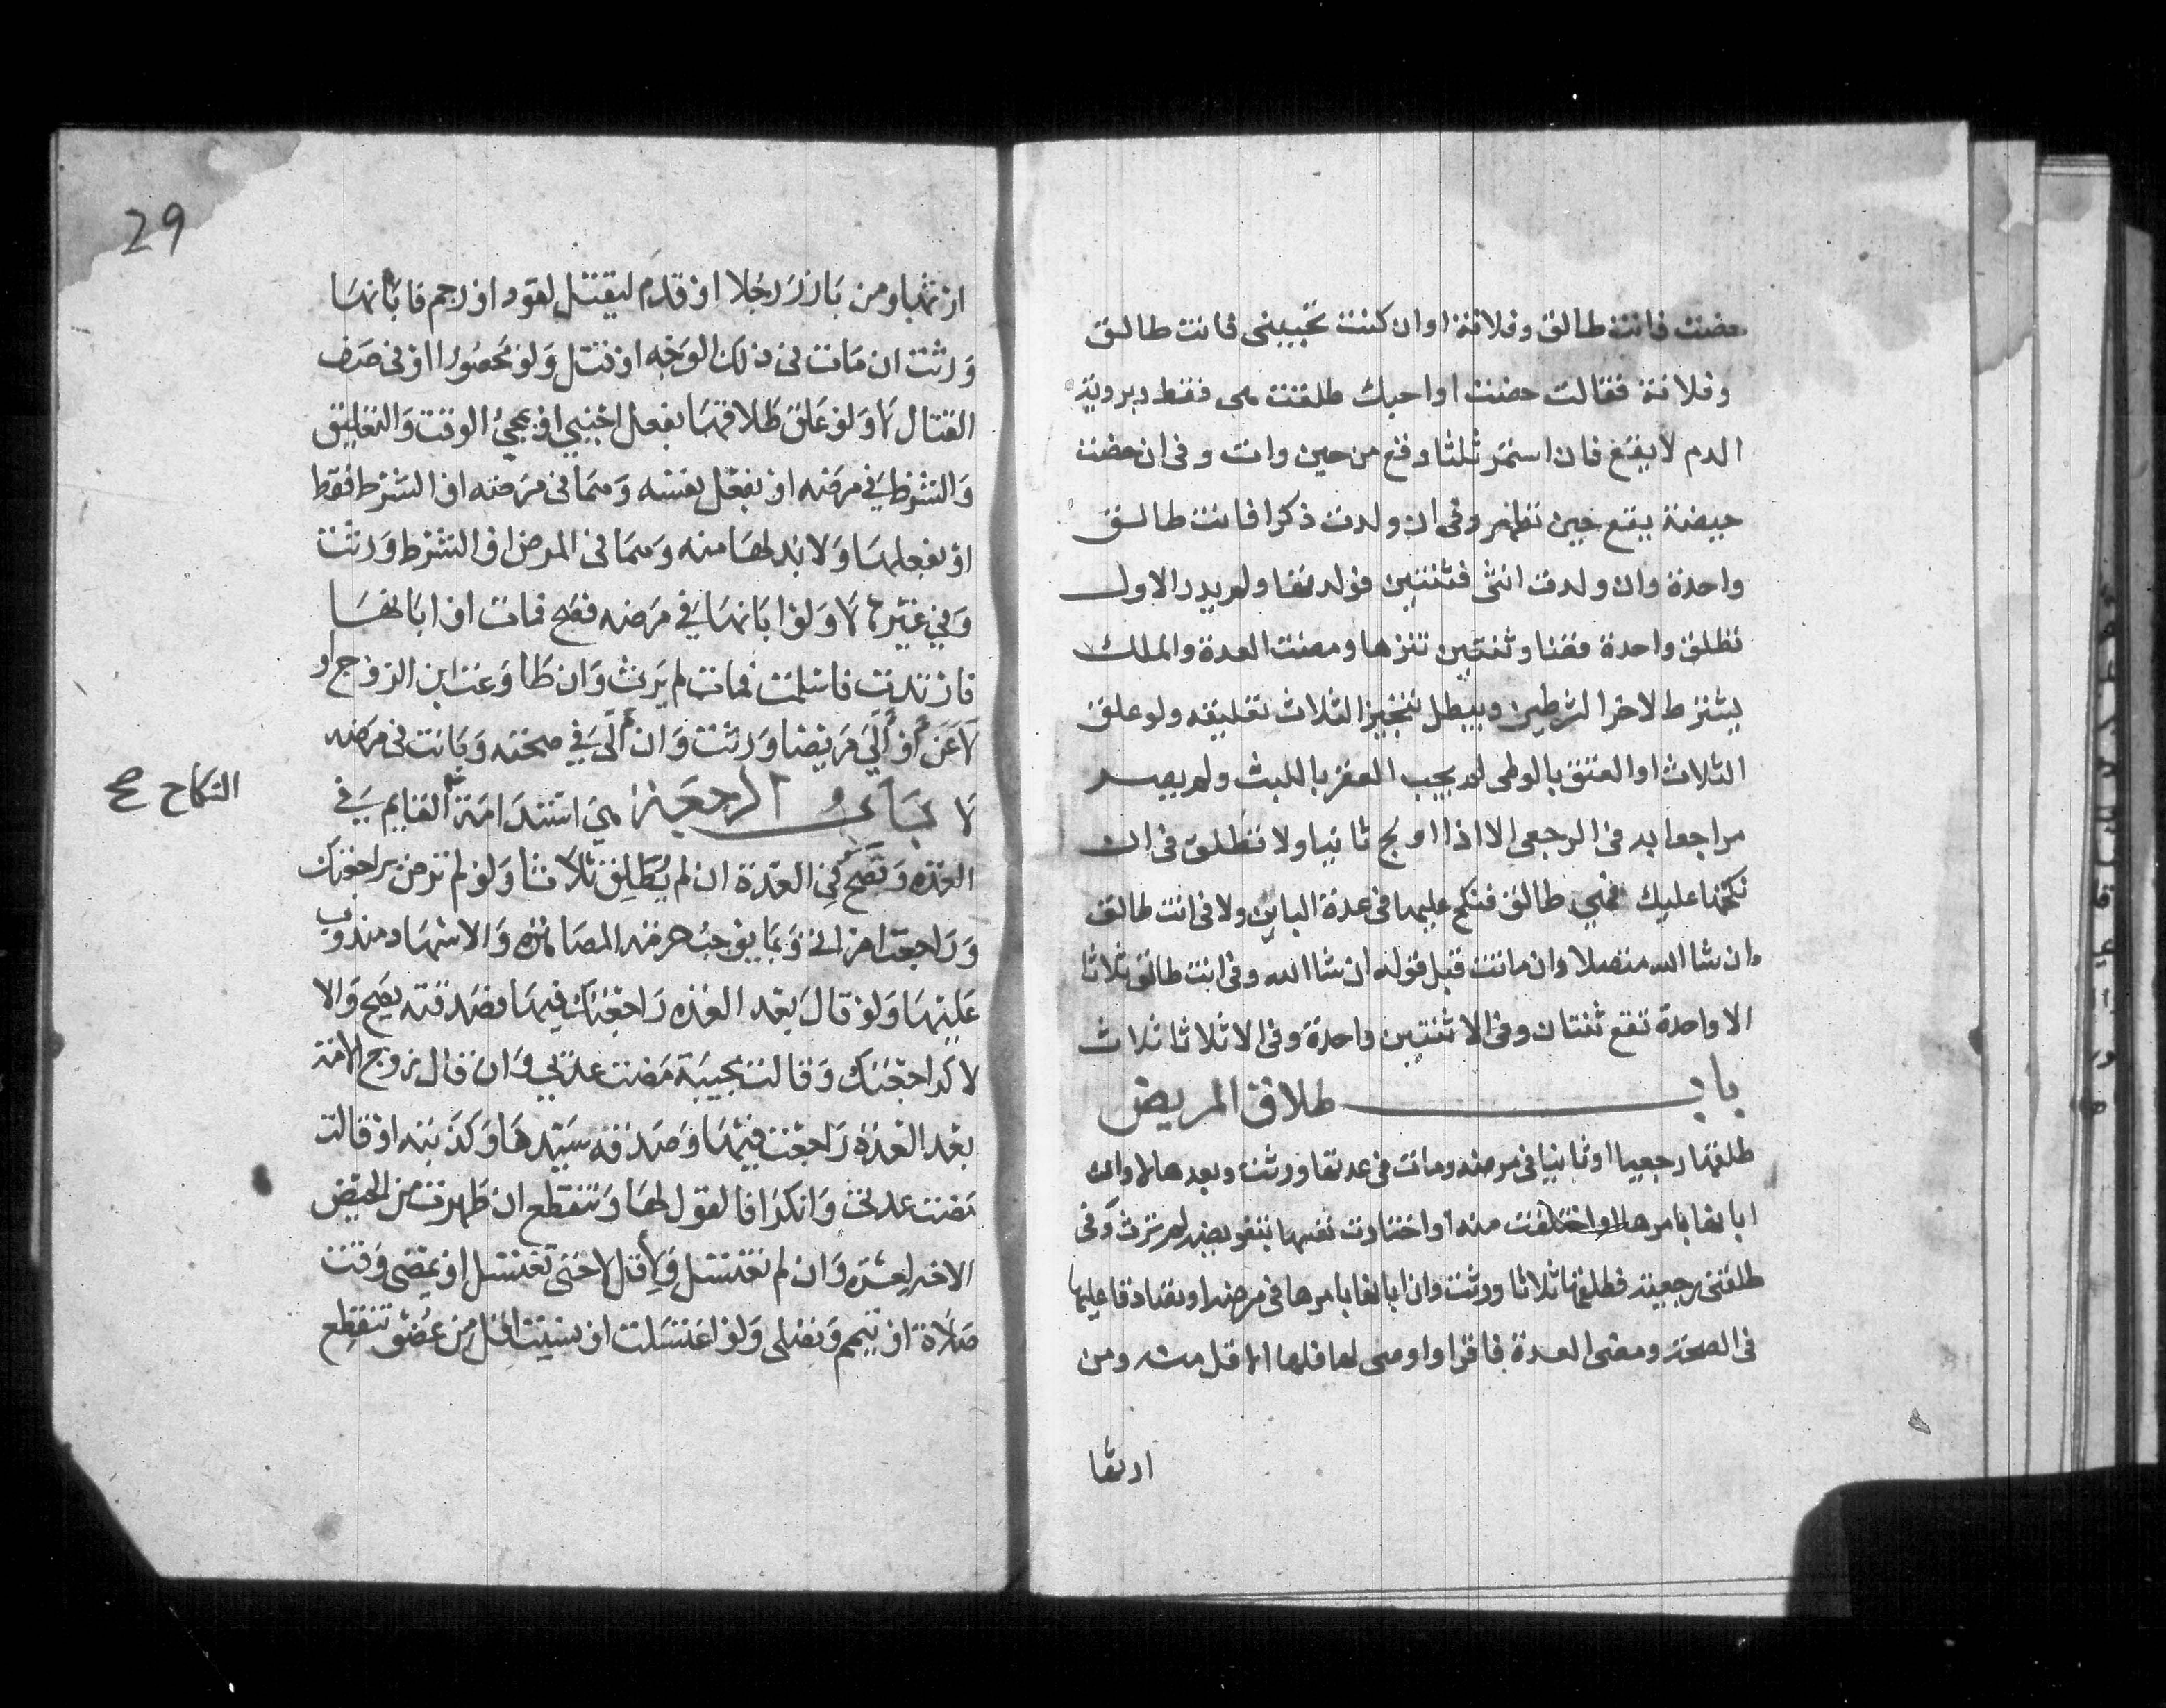 حضت فانت طالق وفلانة او ان كنت تحبيني فانت طالق
وفلانة فقالت حضت او احبك طلقت هى فقط وبروية
الدم لا يقع فان استمر ثلثا وقع من حين رات وفى ان حضت
حيضة يقع حين تطهر وفى ان ولدت ذكرا فانت طالق
واحدة وان ولدت انثى فثنتين فولدتهما ولم يدر الاول
تطلق واحدة قضا وثنتين تنزها ومضت العدة والملك
يشترط لاخر الشرطين ويبطل تنجيز الثلاث تعليقه ولو علق
الثلاث او العتق بالوطى لم يجب العقر باللبث ولم يصر
مراجعا به فى الرجعى الا اذا اولج ثانيا ولا تطلق فى ان
نكحتها عليك فهي طالق فنكح عليها فى عدة الباين ولا فى انت طالق
ان شا الله متصلا وان ماتت قبل قوله ان شا الله وفى انت طالق ثلاثا
الا واحدة تقع ثنتان وفى الا ثنتين واحدة وفى الا ثلاثا ثلاث
باب طلاق المريض
طلقها رجعيا او باينا فى مرضه ومات فى عدتها ورثت وبعدها لا وان
ابانها بامرها او اختلعت منه او اختارت نفسها بتفويضه لم ترث وفى
طلقنى رجعية فطلقها ثلاثا ورثت وان ابانها بامرها فى مرضه او تصادقا عليها
فى الصحة ومضى العدة فاقر او اوصى لها فلها الاقل منه ومن
ارثها
29
ارثها ومن بارز رجلا او قدم ليقتل لقود او رجم فابانها
ورثت ان مات فى ذلك الوجه او قتل ولو محصورا او فى صف
القتال لا ولو علق طلاقها بفعل اجنبي او بمجئ الوقت والتعليق
والشرط في مرضه او بفعل نفسه وهما فى مرضه او الشرط فقط
او بفعلها ولا بد لها منه وهما فى المرض او الشرط ورثت
وفي غيرها لا ولو ابانها في مرضه فصح فمات او ابانها
فارتدت فاسلمت فمات لم يرث وان طاوعت ابن الزوج او
لاعن او آلى مريضا ورثت وان آلى في صحته وبانت فى مرضه
لا باب الرجعة هي استدامة القايم في
النكاح صح
العدة وتصح في العدة ان لم يطلق ثلاثا ولو لم ترض براجعتك
وراجعت امراتى وبما يوجب حرمة المصاهرة والاشهاد مندوب
عليها ولو قال بعد العدة راجعتك فيها فصدقته يصح والا
لا كراجعتك وقالت مجيبة مضت عدتي وان قال زوج الامة
بعد العدة راجعت فيها وصدقه سيدها وكذبته او قالت
مضت عدتى وانكرا فالقول لها وتنقطع ان طهرت من الحيض
الاخير لعشرة وان لم تغتسل ولاقل لا حتى تغتسل او يمضى وقت
صلاة او تيمم وتصلى ولو اغتسلت او نسيت اقل من عضو تنقطع